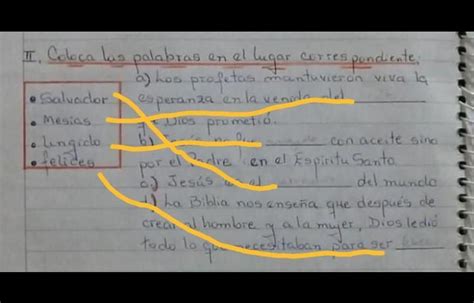 II. Coloca las palabras en el lugar correspondiente:
a) Los profetas mantuvieron viva la
• Salvador
esperanza en la venida del
• Mesías
que Dios prometió.
• Ungido
b) Jesús no fue con aceite sino
• felices
por el Padre en el Espíritu Santo
c) Jesús es el del mundo
d) La Biblia nos enseña que después de
crear al hombre y a la mujer, Dios le dió
todo lo que necesitaban para ser